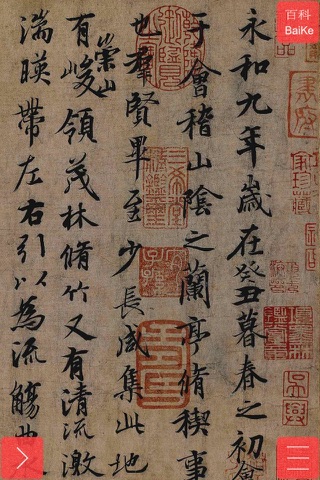 永和九年歲在癸丑暮春之初會
于會稽山陰之蘭亭脩稧事
也羣賢畢至少長咸集此地
有崇山峻領茂林脩竹又有清流激
湍暎帶左右引以為流觴曲水
百科
BaiKe